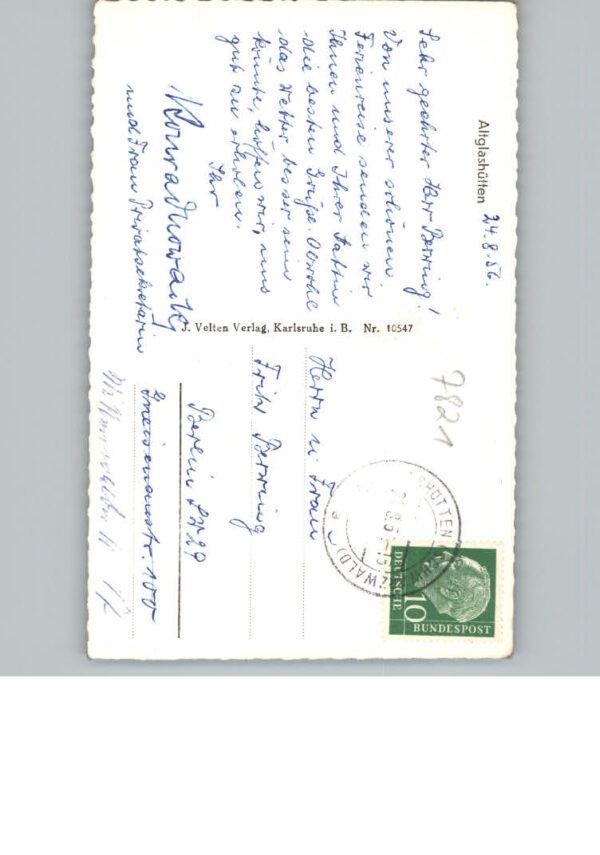 Altglashütten
24.8.56.
Sehr geehrter Herr Berring!
Von unserer schönen
Ferienreise senden wir
Ihnen und Ihrer Gattin
die besten Grüße. Obwohl
das Wetter besser sein
könnte, hoffen wir, uns
gut zu erholen.
Ihr
und Frau Privatsekretärin
J. Velten Verlag, Karlsruhe i. B. Nr. 10547
7821
HÜTTEN
WALD)
a
10
DEUTSCHE
BUNDESPOST
Herrn u. Frau
Fritz Berring
Berlin SW 29
Gneisenaustr. 100